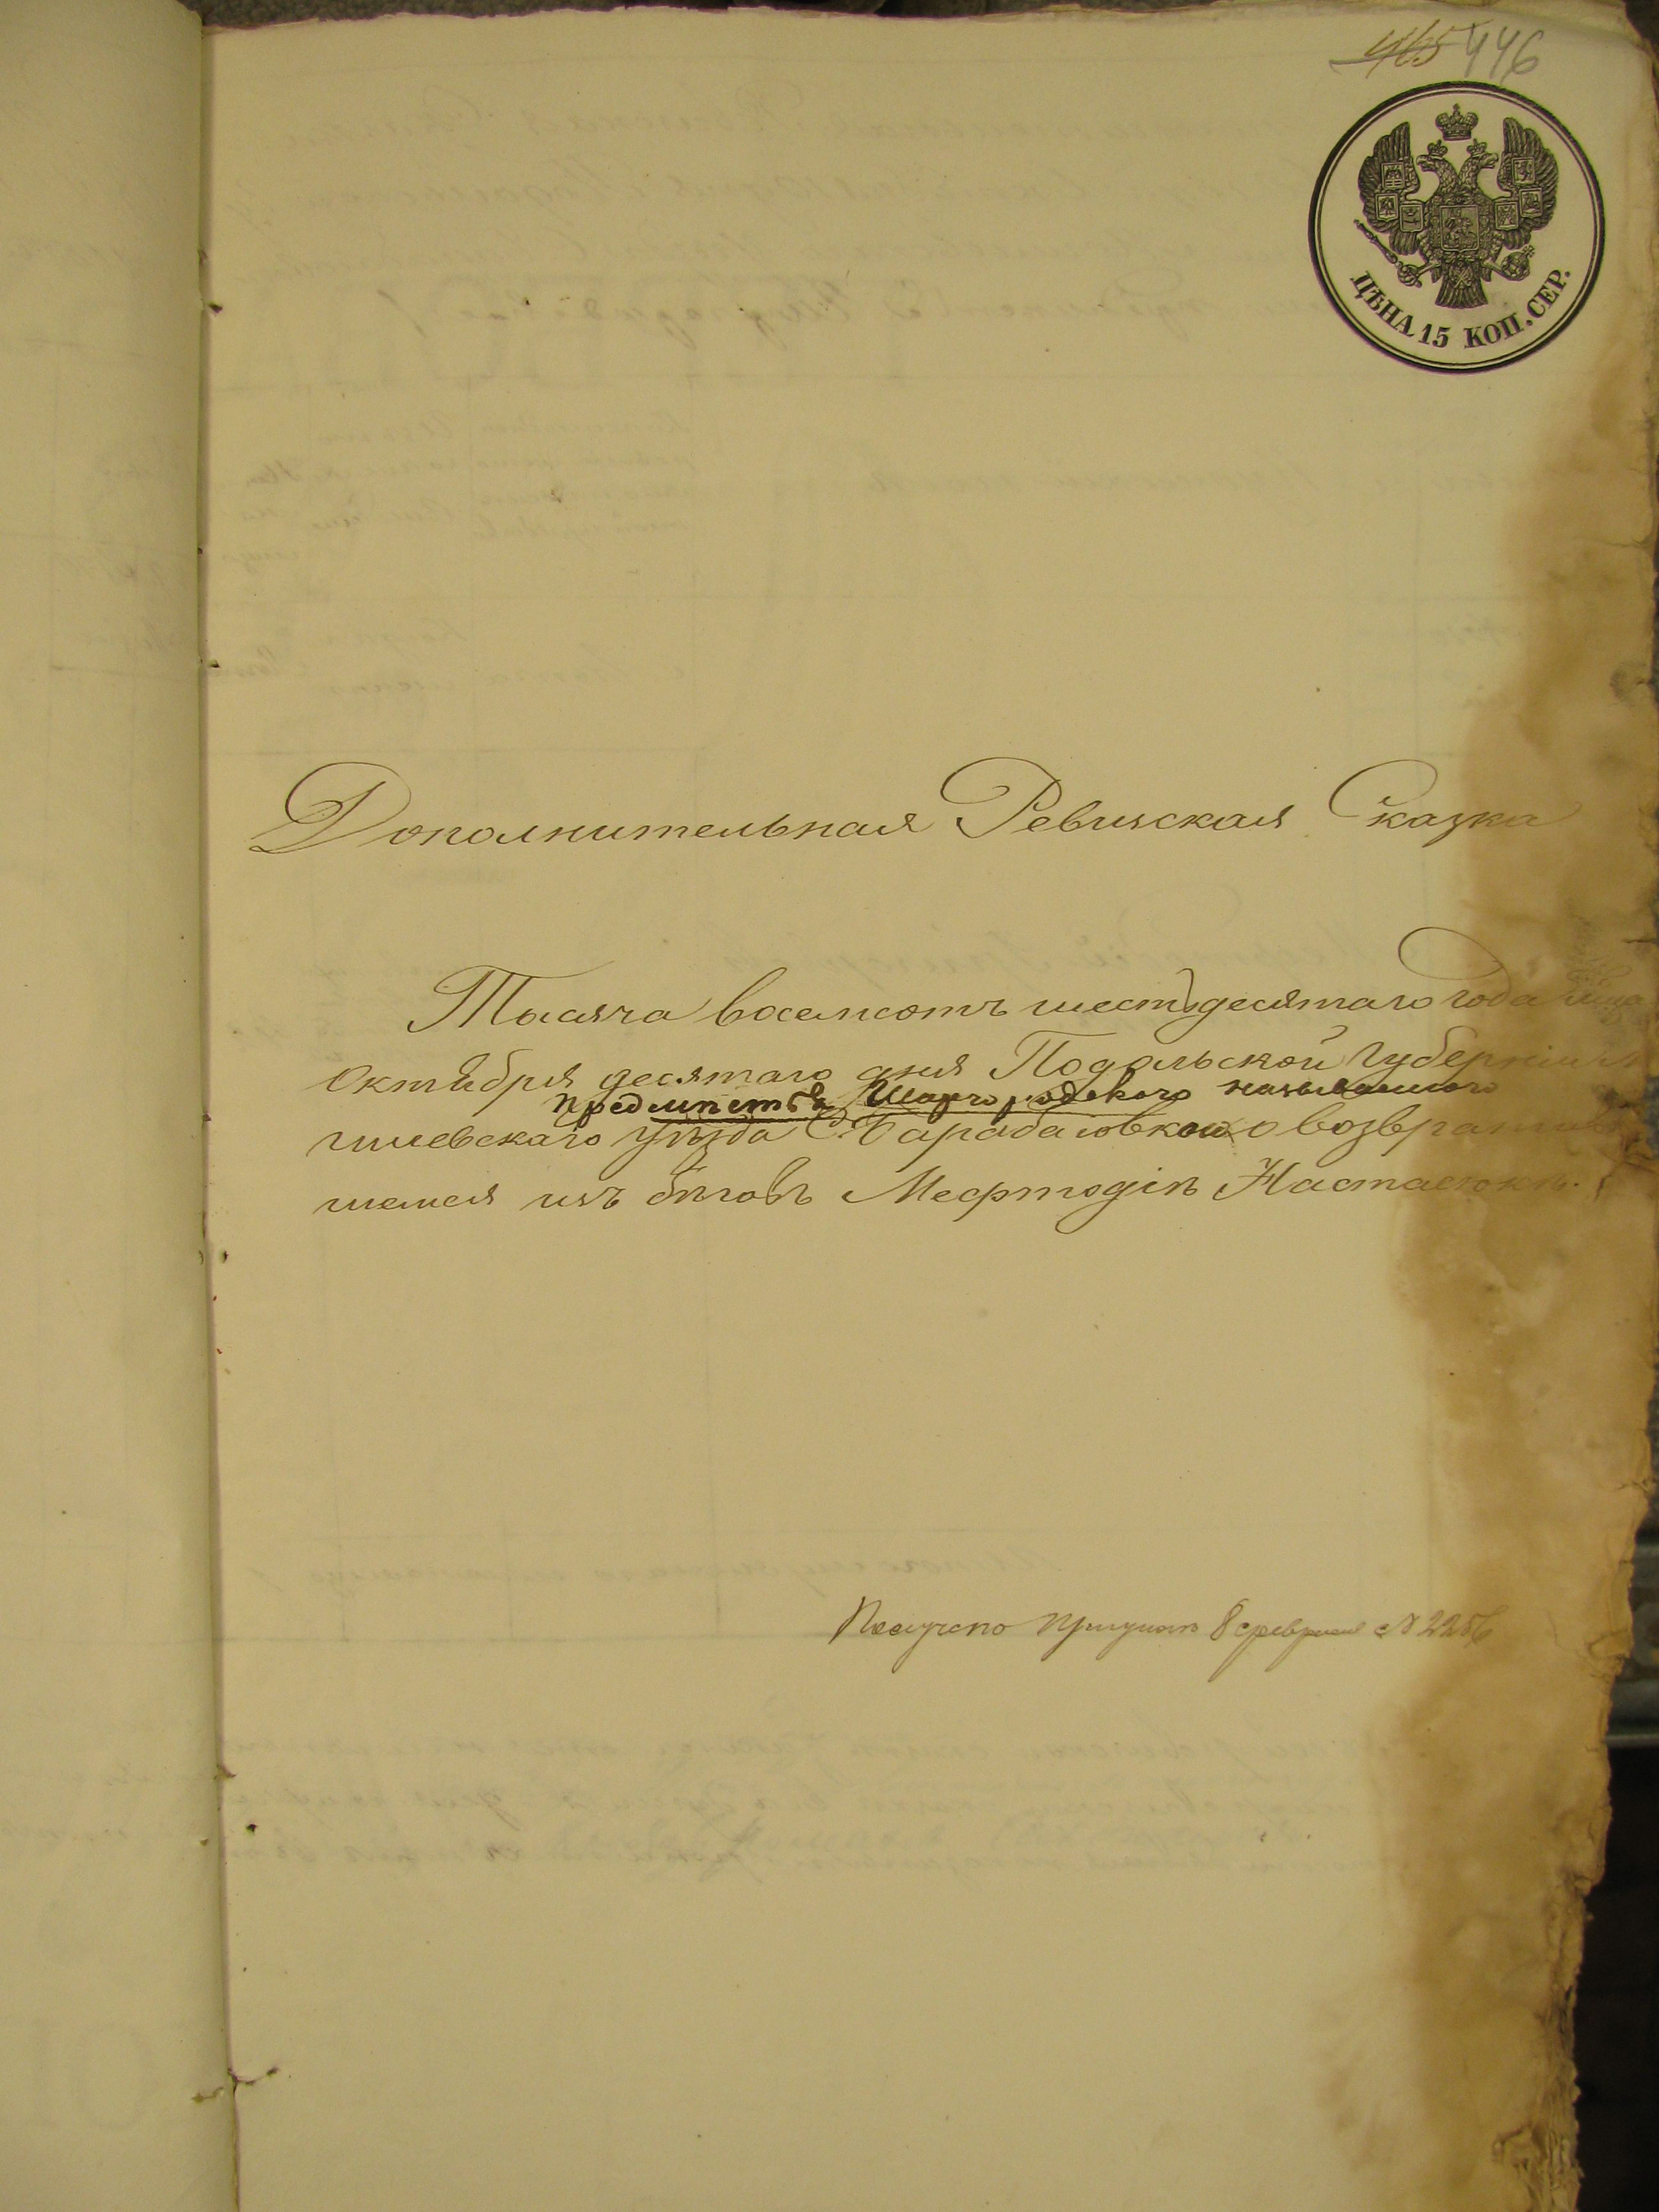 465 446
ЦѢНА 15 КОП. СЕР.
Дополнительная Ревизская Сказка
Тысяча восемсотъ шестьдесятаго года
Октября десятаго дня Подольской Губерніи М
предмѣстья Шаргородского называемого
гилевскаго уѣзда С. Барабаговкою о возвратив
шемся изъ бѣговъ Мефтодіѣ Настасюкѣ.
Получено 8 февраля № 2256